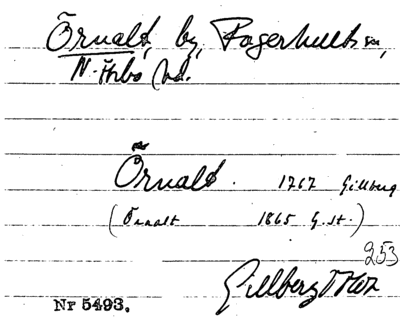 Örnalt, by, Fagerhults sn,
N. Åsbo hd.
Örnalt. 1767 Gillberg
(Örnalt 1865 G.st.)
253
Gillberg
Nr 5493.